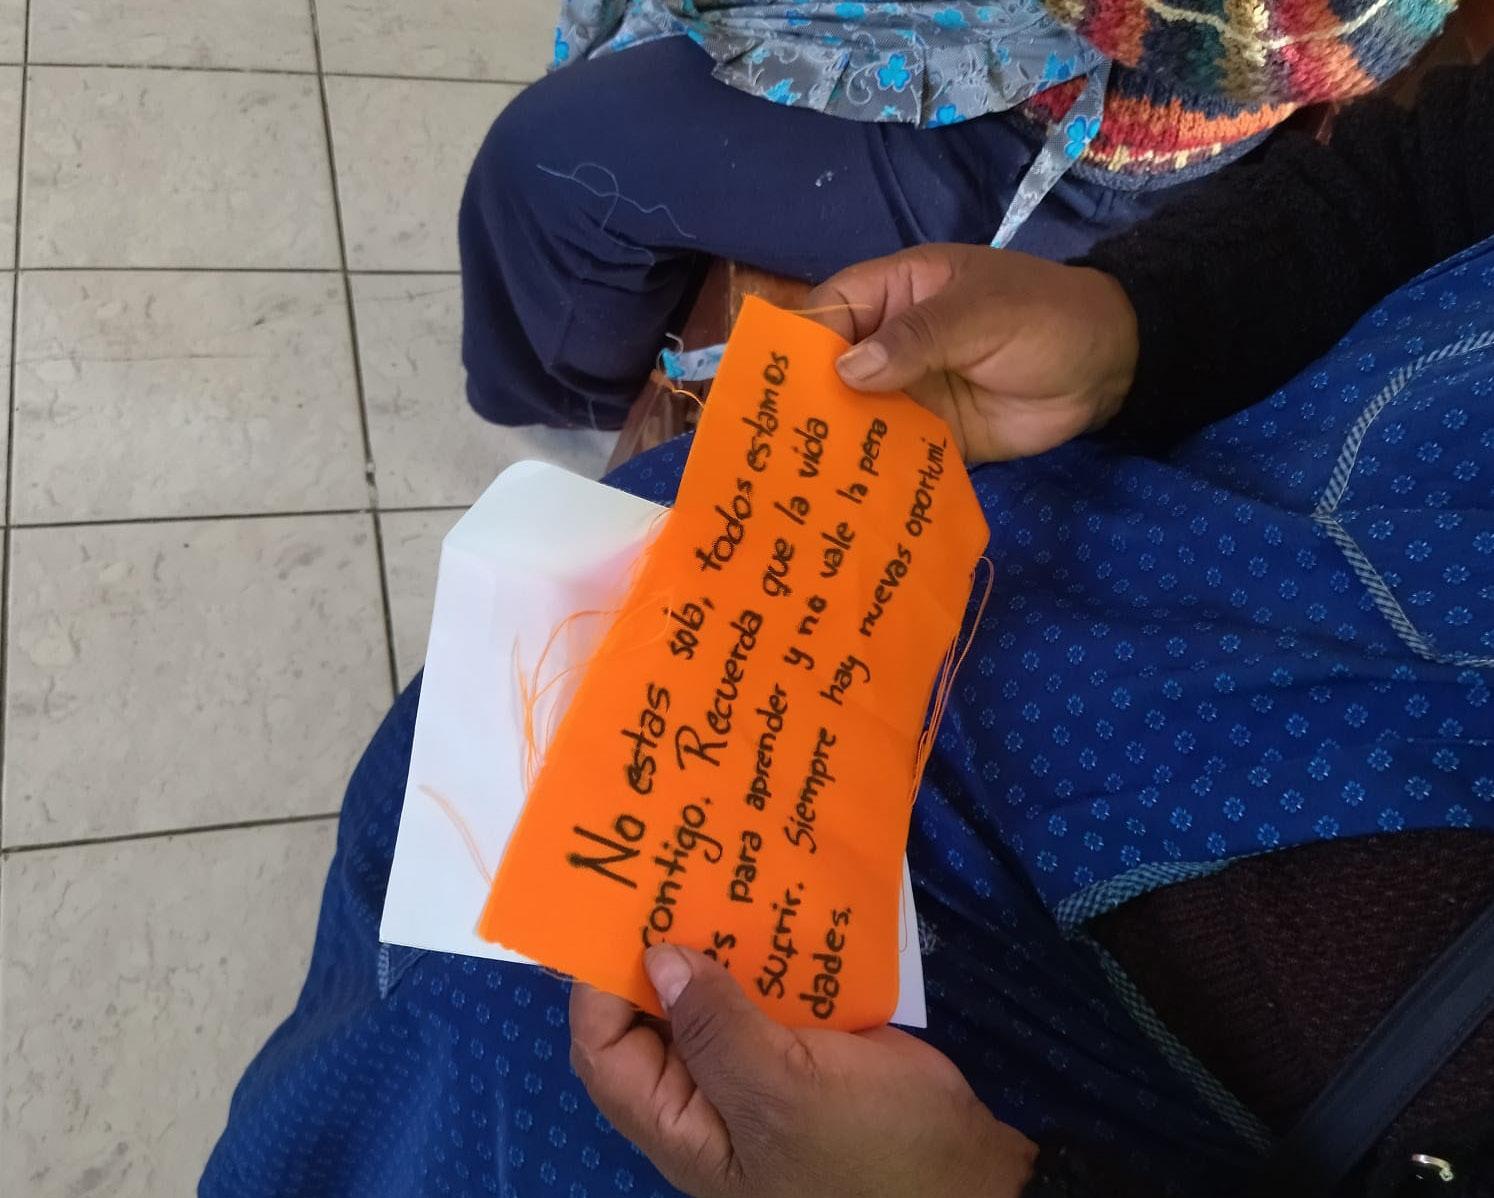 No estas sola, todos estamos
contigo. Recuerda que la vida
es para aprender y no vale la pena
sufrir. Siempre hay nuevas oportuni_
dades.